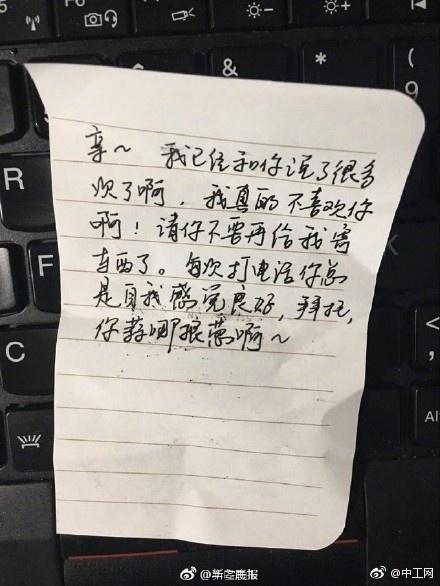 &
*
(
9
R
F
C
亲～ 我已经和你说了很多
次了啊，我真的不喜欢你
啊！请你不要再给我寄
东西了。每次打电话你总
是自我感觉良好，拜托，
你算哪根葱啊～
@中工网